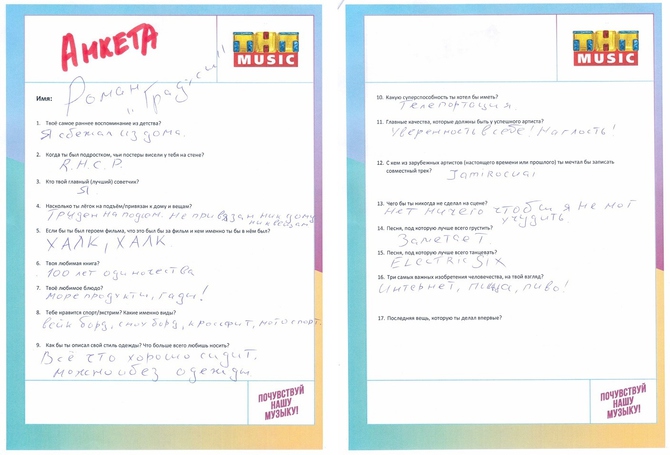 АНКЕТА
ТНТ
MUSIC
Имя: Роман "Град,си"
1. Твоё самое раннее воспоминание из детства?
Я сбежал из дома.
2. Когда ты был подростком, чьи постеры висели у тебя на стене?
R.H.C.P.
3. Кто твой главный (лучший) советчик?
Я
4. Насколько ты лёгок на подъём/привязан к дому и вещам?
Труден на подъем. не привязан ни к дому
ни к вещам
5. Если бы ты был героем фильма, что это был бы за фильм и кем именно ты бы в нём был?
ХАЛК, ХАЛК.
6. Твоя любимая книга?
100 лет одиночества
7. Твоё любимое блюдо?
Морепродукты, гады!
8. Тебе нравится спорт/экстрим? Какие именно виды?
вейкборд, сноуборд, кроссфит, мотоспорт.
9. Как бы ты описал свой стиль одежды? Что больше всего любишь носить?
Всё что хорошо сидит.
можно без одежды
ПОЧУВСТВУЙ
НАШУ
МУЗЫКУ!
ТНТ
MUSIC
10. Какую суперспособность ты хотел бы иметь?
Телепортация.
11. Главные качества, которые должны быть у успешного артиста?
Уверенность в себе! Наглость!
12. С кем из зарубежных артистов (настоящего времени или прошлого) ты мечтал бы записать
совместный трек?
Jamirocuai
13. Чего бы ты никогда не сделал на сцене?
Нет ничего чтобы я не мог
учудить
14. Песня, под которую лучше всего грустить?
Заметает
15. Песня, под которую лучше всего танцевать?
ELECTRIC SIX
16. Три самых важных изобретения человечества, на твой взгляд?
Интернет, пицца, пиво!
17. Последняя вещь, которую ты делал впервые?
ПОЧУВСТВУЙ
НАШУ
МУЗЫКУ!